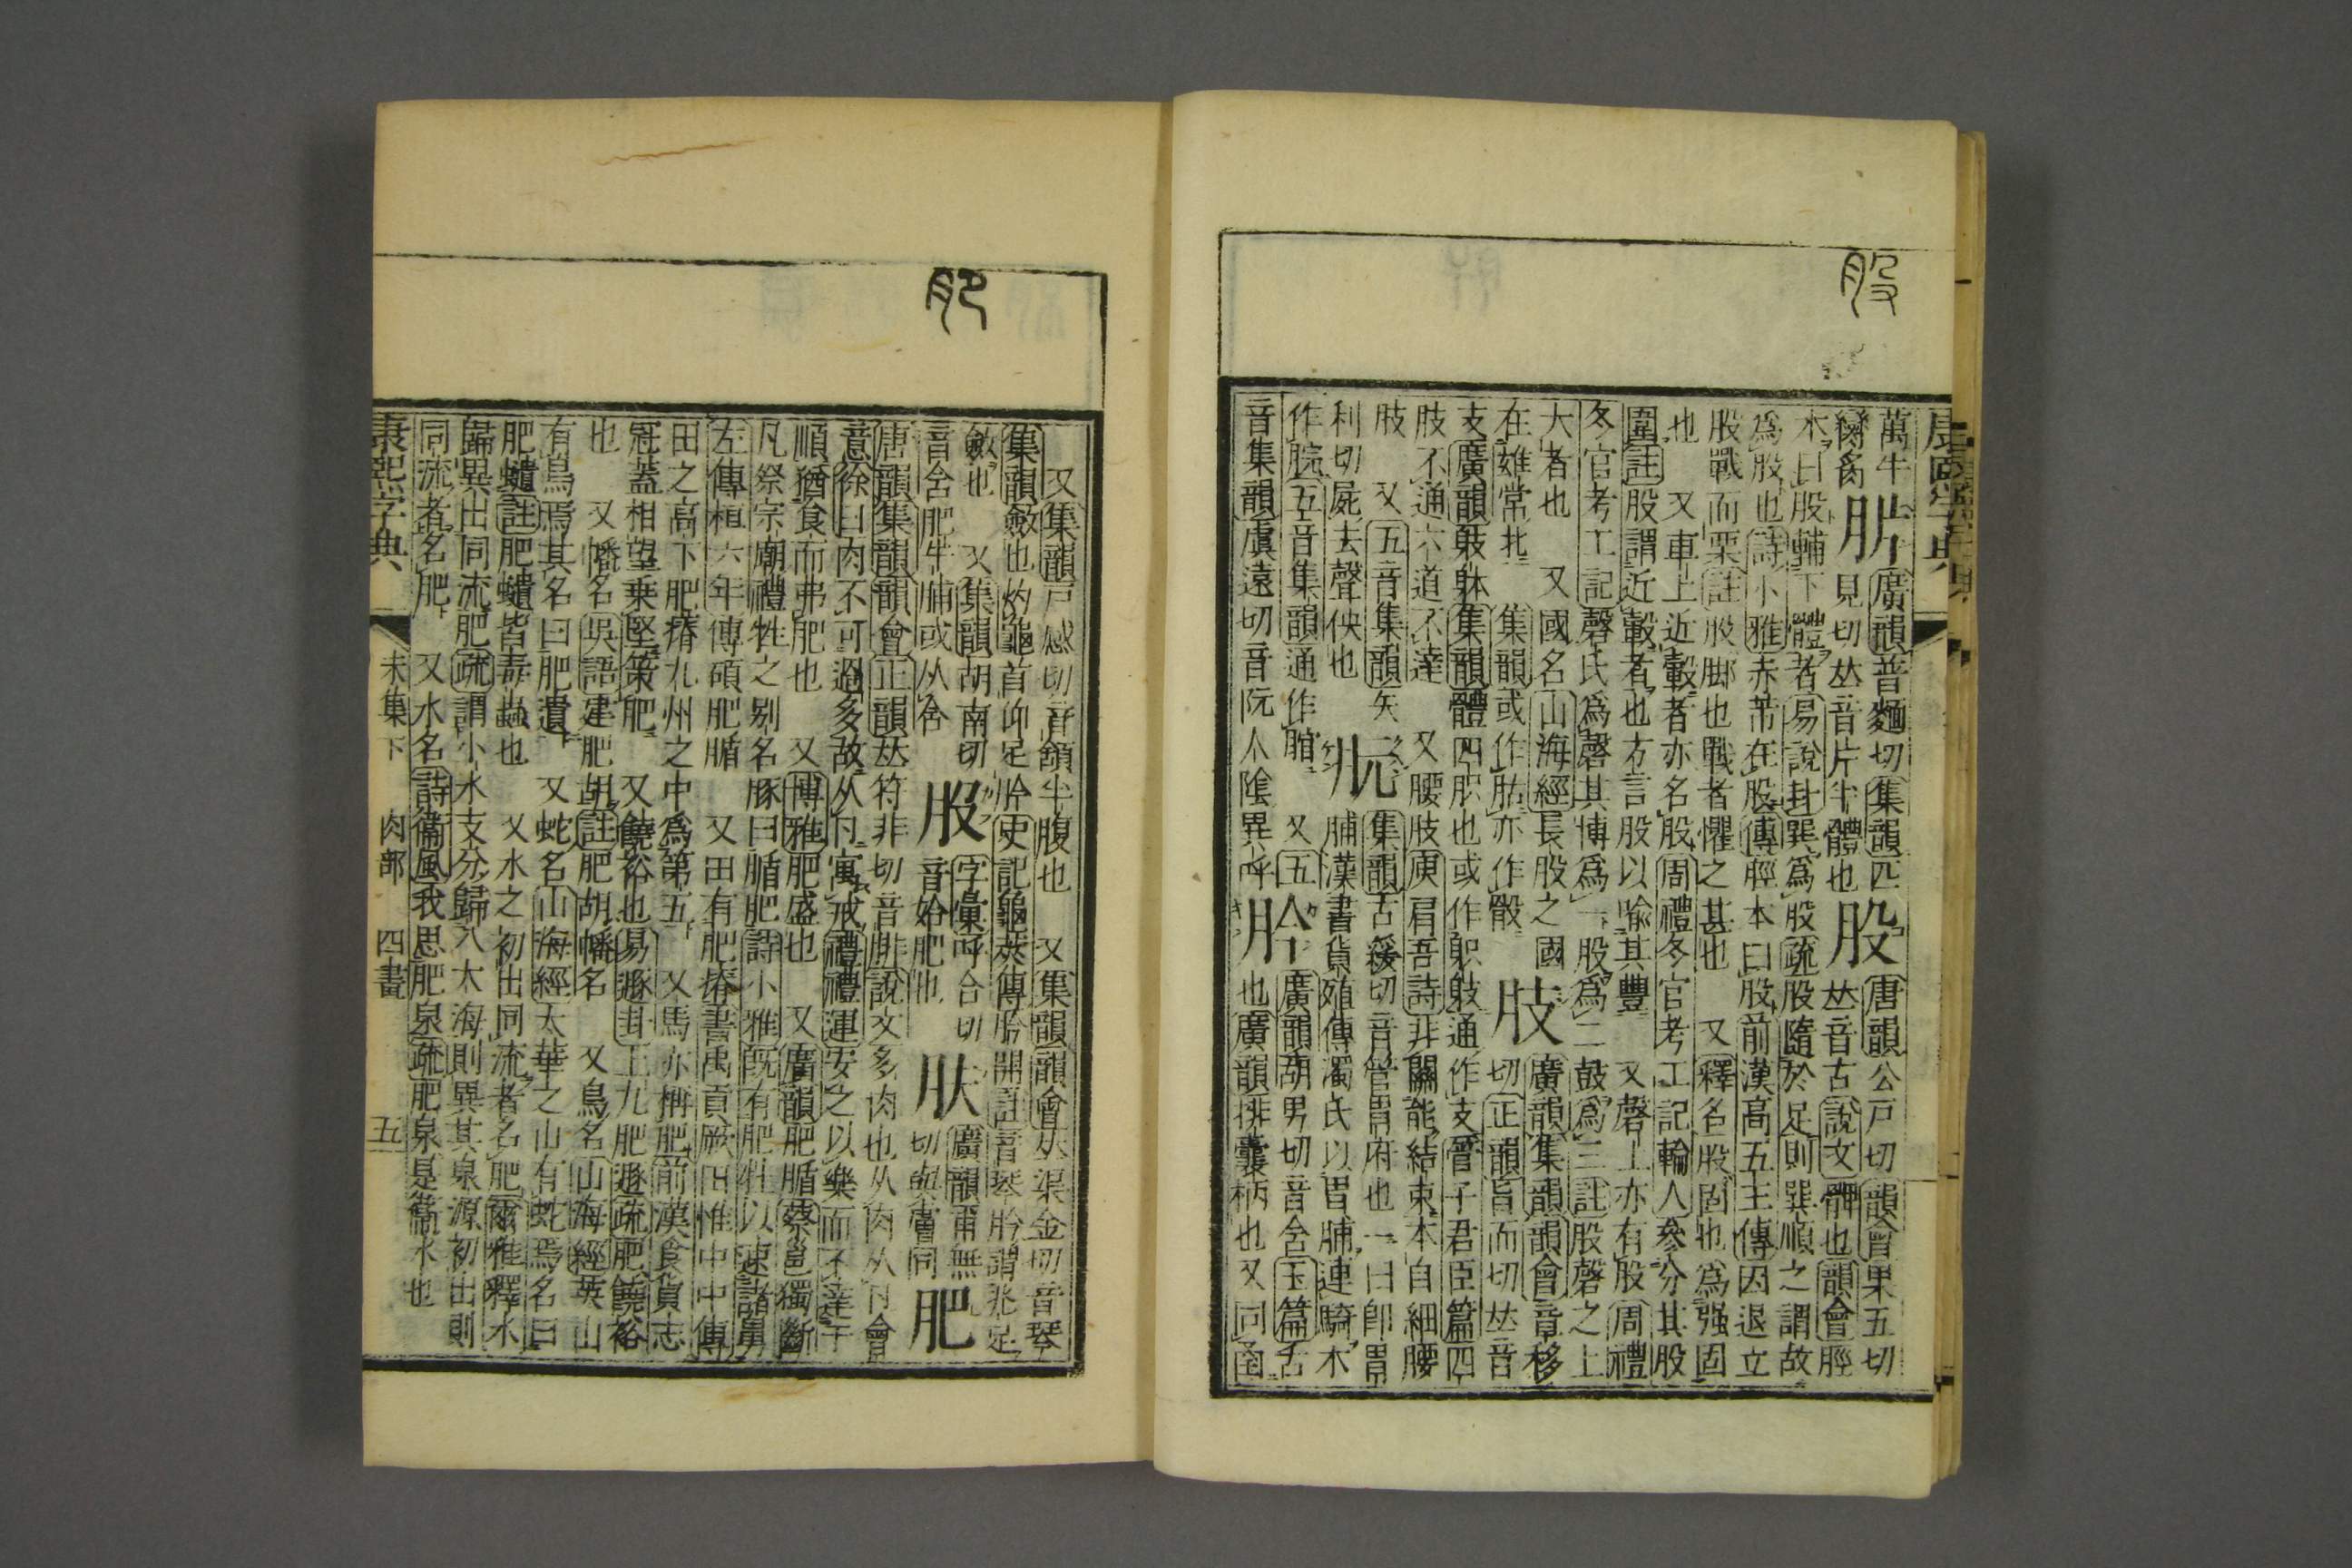 股
萬牛
臠肉
肨
廣韻普麵切集韻匹
見切𠀤音片半體也
股
唐韻公戸切韻會果五切
𠀤音古說文髀也韻會脛
本曰股輔下體者易說卦巽爲股疏股隨於足則巽順之謂故
爲股也詩小雅赤芾在股傳脛本曰股前漢高五王傳因退立
股戰而栗註股脚也戰者懼之甚也 又釋名股固也爲强固
也 又車上近轂者亦名股周禮冬官考工記輪人參分其股
圍註股謂近轂者也方言股以喻其豐 又磬上亦有股周禮
冬官考工記磬氏爲磬其博爲一股爲二鼓爲三註股磬之上
大者也 又國名山海經長股之國
在雄常北 集韻或作𦙶亦作骰
肢
廣韻集韻韻會章移
切正韻旨而切𠀤音
支廣韻肢躰集韻體四胑也或作躬䠱通作支管子君臣篇四
肢不通六道不達 又腰肢庾肩吾詩非關能結束本自細腰
肢 又五音集韻矢
利切屍去聲佒也
朊
集韻古緩切音管胃府也一曰卽胃
脯漢書貨殖傳濁氏以胃脯連騎木
作脘五音集韻通作䏓 又五
音集韻虞遠切音阮人陰異呼
肣
廣韻胡男切音含玉篇舌
也廣韻排囊柄也又同圅
肥
又集韻戸感切音頷牛腹也 又集韻韻會𠀤渠金切音琴
集韻斂也灼龜首仰足肣史記龜筴傳肣開註音琴肣謂兆足
斂也 又集韻胡南切
音含肥牛脯或从含
䏜
字彙呼合切
音始肥也
肤
廣韻甫無
切與膚同
肥
唐韻集韻韻會正韻𠀤符非切音腓說文多肉也从肉从卪會
意徐曰肉不可過多故从卪寓戒禮禮運安之以樂而不達于
順猶食而弗肥也 又博雅肥盛也 又廣韻肥腯蔡邕獨斷
凡祭宗廟禮牲之别名豚曰腯肥詩小雅旣有肥牡以速諸舅
左傳桓六年傳碩肥腯 又田有肥瘠書禹貢厥田惟中中傳
田之高下肥瘠九州之中爲第五 又馬亦稱肥前漢食貨志
冠蓋相望乗堅策肥 又饒裕也易遯卦上九肥遯疏肥饒裕
也 又幡名吳語建肥胡註肥胡幡名 又鳥名山海經英山
有鳥焉其名曰肥遺 又蛇名山海經太華之山有蛇焉名曰
肥𧔥註肥𧔥皆毒蟲也 又水之初出同流者名肥爾雅釋水
歸異出同流肥疏謂小水支分歸入大海則異其泉源初出則
同流者名肥 又水名詩衞風我思肥泉疏肥泉是衞水也
康熙字典
未集下 肉部 四畫 五